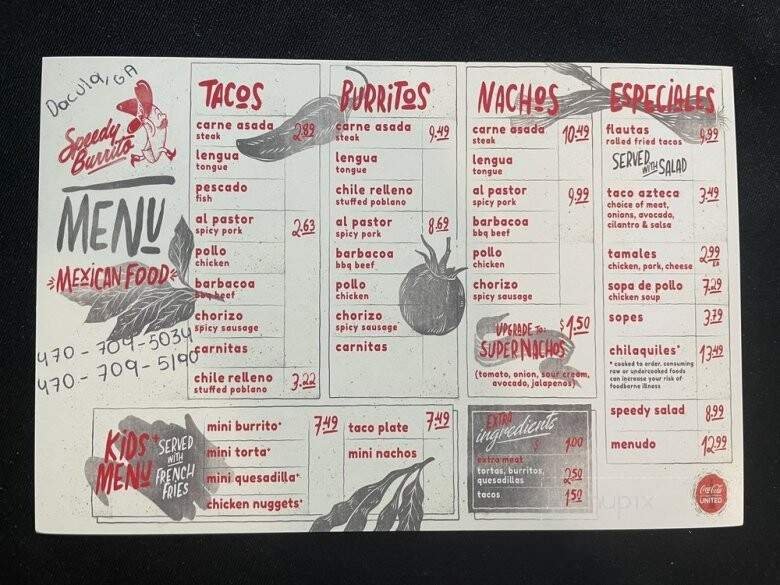 Dacula, GA
Speedy
Burrito
MENU
MEXICAN FOOD
470-709-5034
470-709-5190
TACOS
carne asada 2.89
steak
lengua
tongue
pescado
fish
al pastor 2.63
spicy pork
pollo
chicken
barbacoa
bbq beef
chorizo
spicy sausage
carnitas
chile relleno 3.22
stuffed poblano
BURRITOS
carne asada 9.49
steak
lengua
tongue
chile relleno
stuffed poblano
al pastor 8.69
spicy pork
barbacoa
bbq beef
pollo
chicken
chorizo
spicy sausage
carnitas
NACHOS
carne asada 10.49
steak
lengua
tongue
al pastor 9.99
spicy pork
barbacoa
bbq beef
pollo
chicken
chorizo
spicy sausage
UPGRADE TO: $1.50
SUPERNACHOS
(tomato, onion, sour cream,
avocado, jalapenos)
ESPECIALES
flautas 9.99
rolled fried tacos
SERVED WITH SALAD
taco azteca 3.49
choice of meat,
onions, avocado,
cilantro & salsa
tamales 2.99
chicken, pork, cheese
sopa de pollo 7.29
chicken soup
sopes 3.79
chilaquiles* 13.49
* cooked to order. consuming
raw or undercooked foods
can increase your risk of
foodborne illness
speedy salad 8.99
menudo 12.99
KIDS+
MENU
SERVED
WITH
FRENCH
FRIES
mini burrito+ 7.49
mini torta+
mini quesadilla+
chicken nuggets+
taco plate 7.49
mini nachos
EXTRA
ingredients
$ 1.00
extra meat
tortas, burritos, 2.50
quesadillas
tacos 1.50
Coca-Cola
UNITED